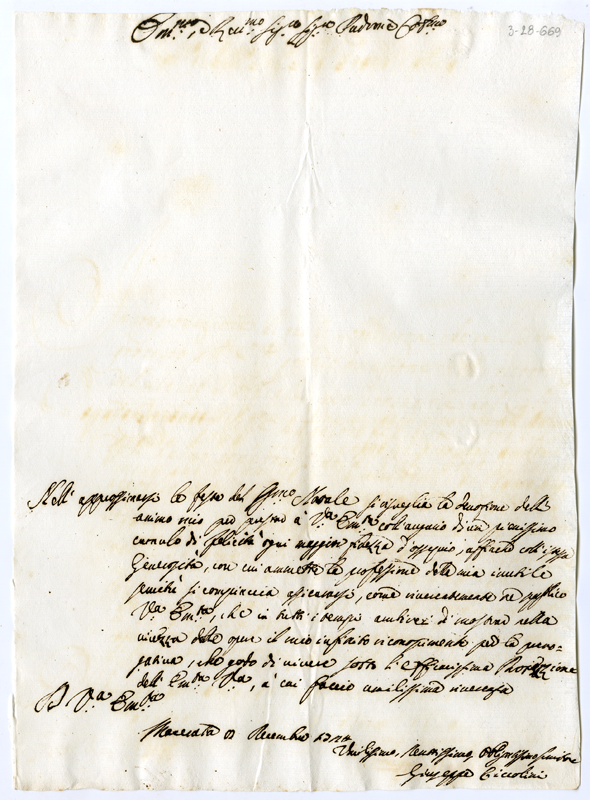 Em.mo, e Rev.mo Sig.re Sig.re Padrone Col.mo
3-28-669
Nell' approssimarsi le feste del S.mo Natale si risveglia la devozione dell'
animo mio per presentare à V.a Em.za coll' augurio d'un pienissimo
cumulo di felicità ogni maggior finezza d'ossequio, affinche coll' istessa
Generosità, con cui ammette la professione della mia inutile
servitù si compiaccia assicurarsi, come vivamente ne supplico
V.a Em.za, che in tutti i tempi di mostrare nella
delle opere il mio infinito riconoscimento per la prero-
gativa, che godo di vivere sotto l' efficacissima Protezzione
dell' Em.za V.a, à cui faccio umilissima riverenza
D V.a Em.za
Macerata Decembre
Umilissimo, Devotissimo, Obligatissimo Servitore
Giuseppe Ciccolini